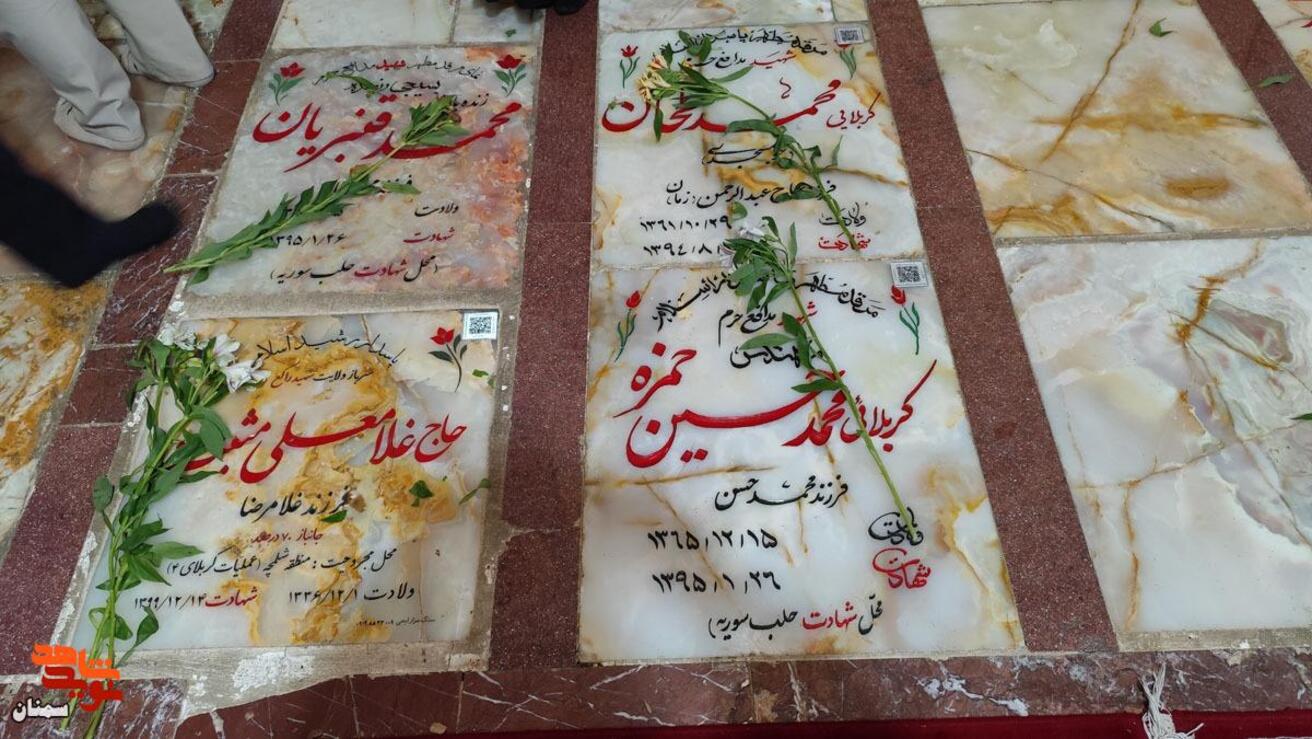 شهید مدافع
بسیجی
محمد قنبریان
ولادت
شهادت ۱۳۹۵/۱/۲۶
(محل شهادت حلب سوریه)
شهید مدافع
کربلایی
محمد
عبدالرحمن (زمان)
ولادت ۱۳۶۱/۱۰/۲۹
شهادت ۱۳۹۴/۸/
حاج غلامعلی
فرزند غلامرضا
جانباز ۷۰ درصد
محل مجروحیت : منطقه شلمچه (عملیات کربلای ۴)
ولادت ۱۳۳۶/۱۲/۱ شهادت ۱۳۹۹/۱۲/۱۴
شهید مدافع حرم
مهندس
کربلائی محمد حسین حمزه
فرزند محمد حسن
ولادت ۱۳۶۵/۱۲/۱۵
شهادت ۱۳۹۵/۱/۲۶
(محل شهادت حلب سوریه)
نوید شاهد
سمنان